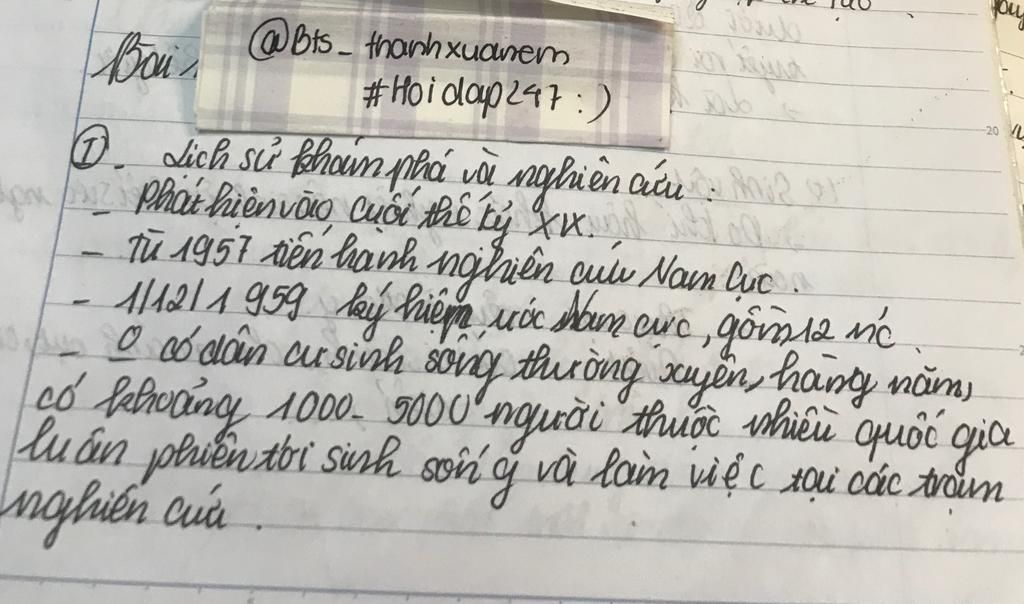 @Bts_thanhxuanem
#Hoidap247:)
Bài
I - Lịch sử khám phá và nghiên cứu :
- Phát hiện vào cuối thế kỷ XIX.
- Từ 1957 tiến hành nghiên cứu Nam Cực.
- 1/12/1959 ký hiệp ước Nam cực, gồm 12 nc
- 0 có dân cư sinh sống thường xuyên, hàng năm,
có khoảng 1000-5000 người thuộc nhiều quốc gia
luân phiên tới sinh sống và làm việc tại các trạm
nghiên cứu.
20